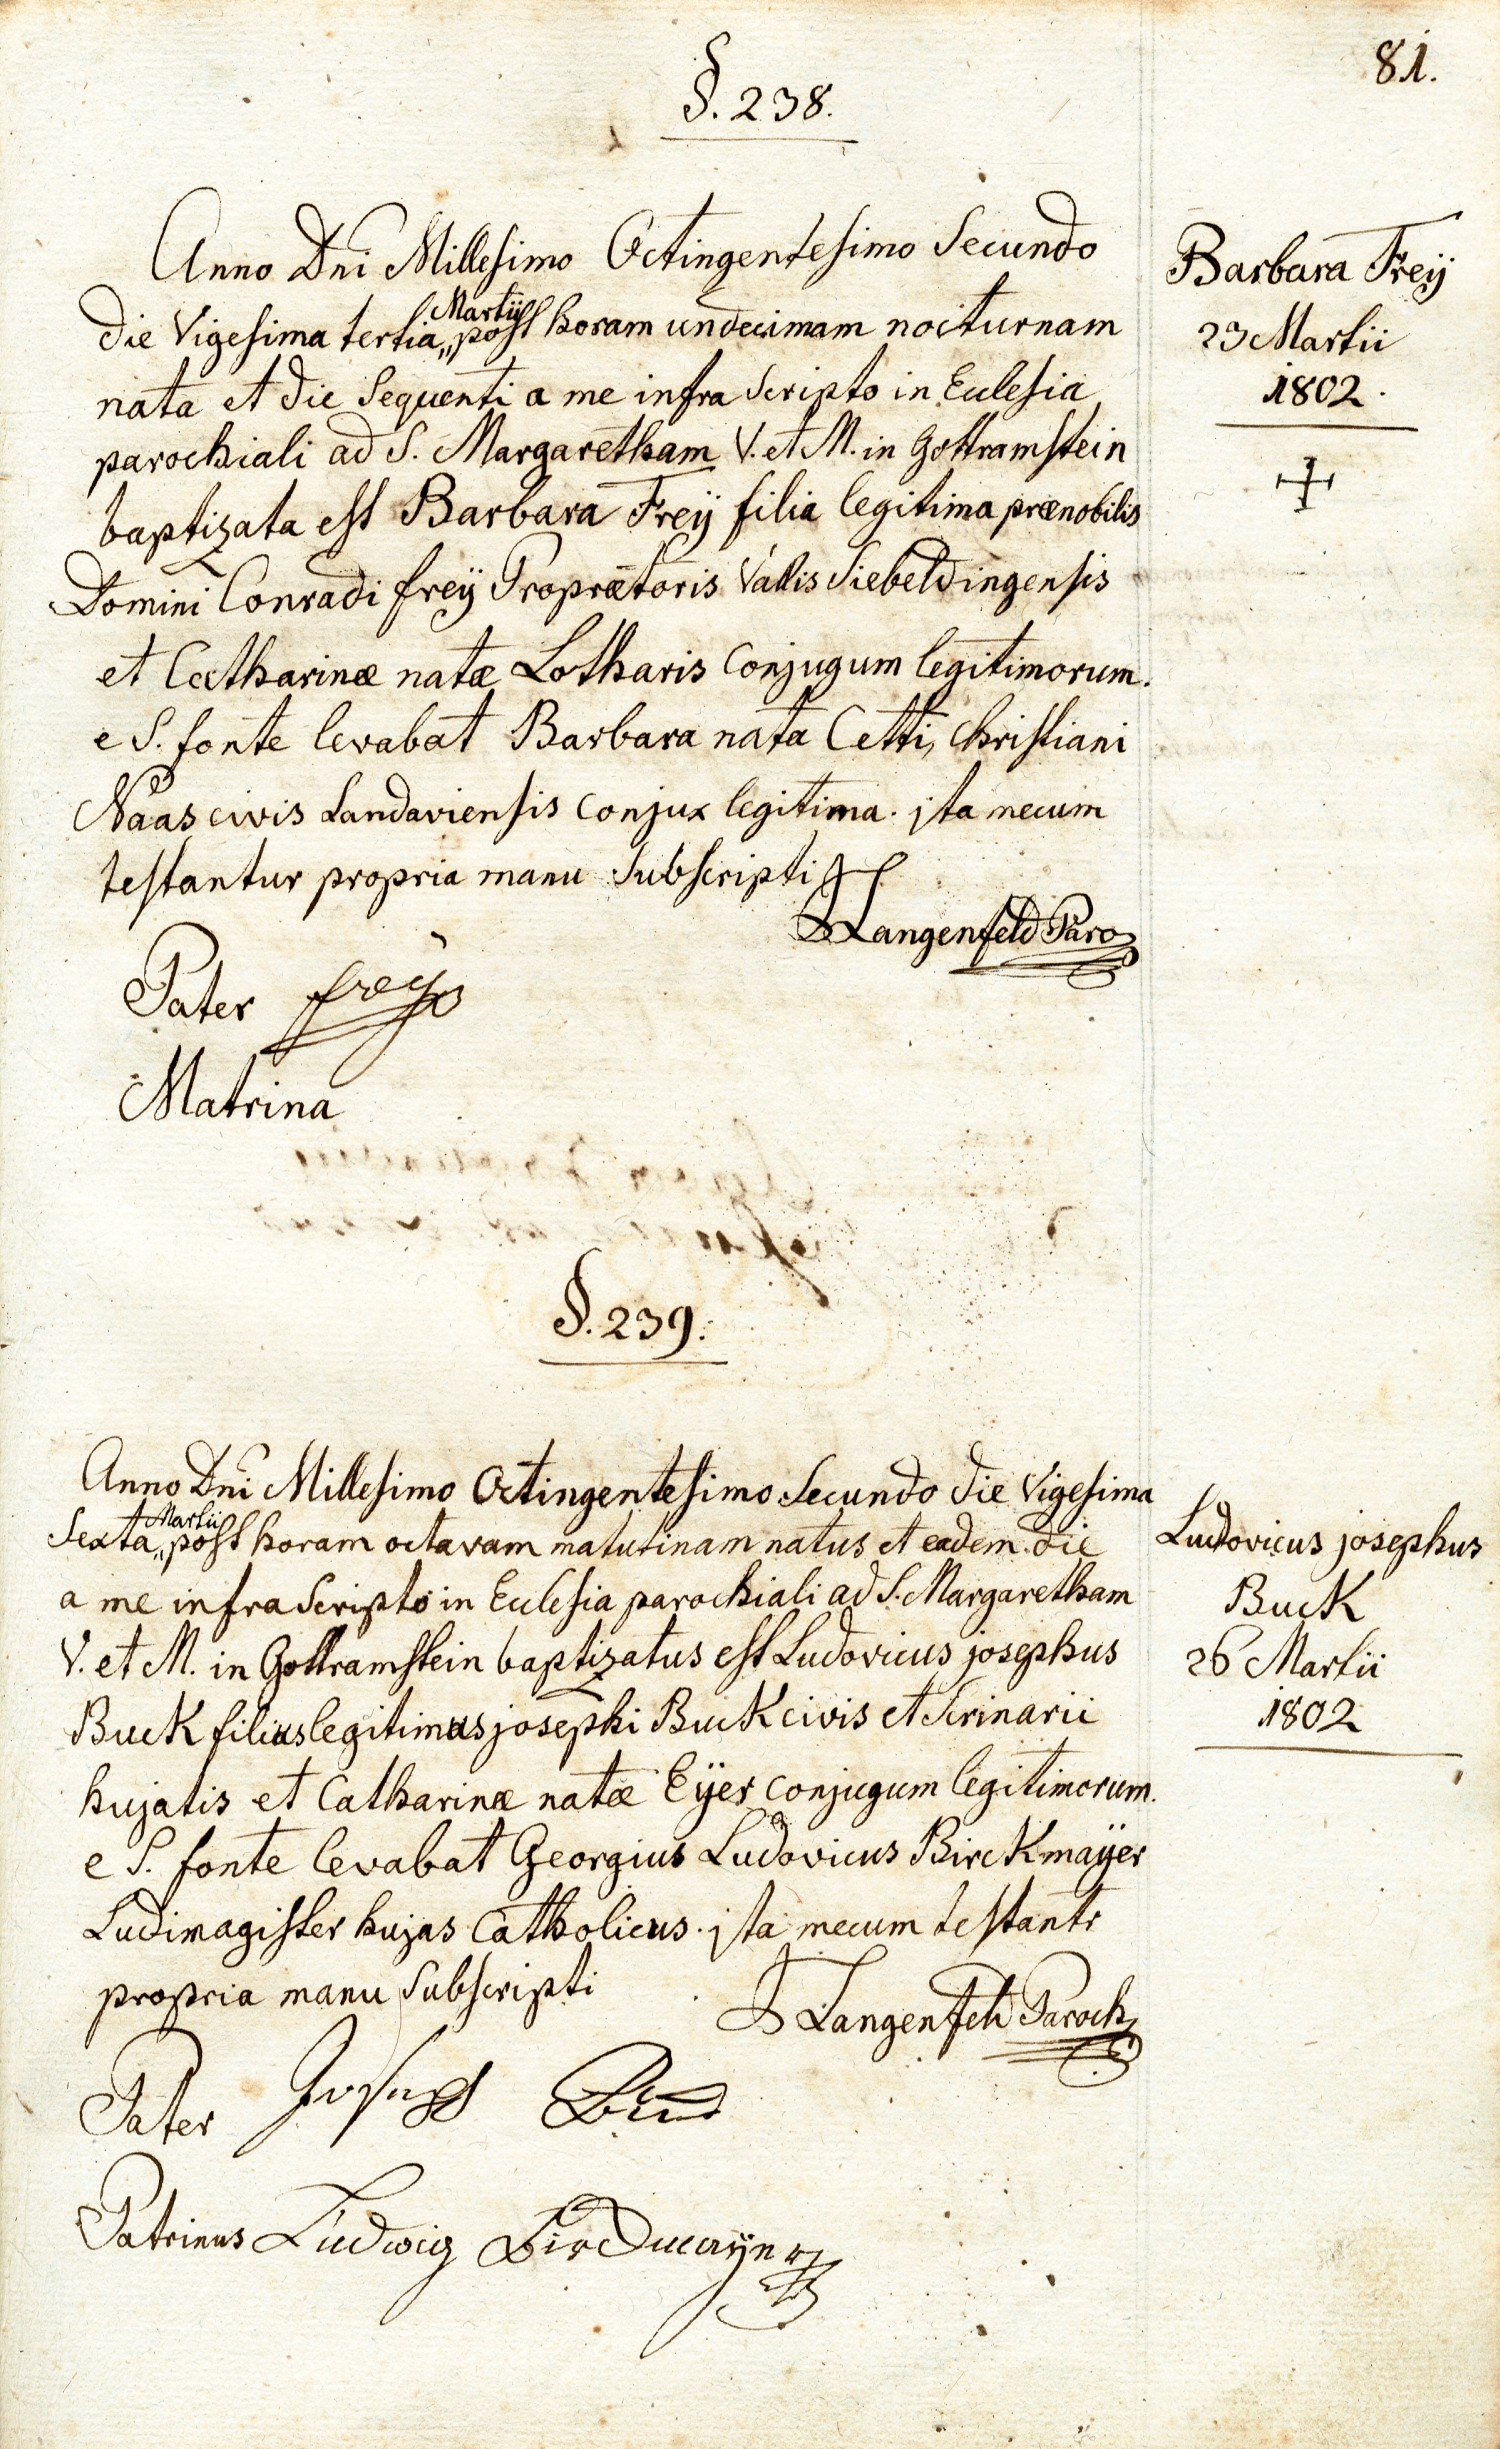 81.
§. 238.
Anno Dni Millesimo Octingentesimo Secundo
die Vigesima tertia „ Martii post horam undecimam nocturnam
nata et die Sequenti a me infra Scripto in Eclesia
parochiali ad S. Margaretham V. et M. in Gottramstein
baptizata est Barbara Freÿ filia legitima prænobilis
Domini Conradi freÿ Proprætoris Vallis Siebeldingensis
et Catharinæ natæ Lotharis Conjugum legitimorum.
e S. fonte levabat Barbara nata Cetti, Christiani
Naas civis Landaviensis Conjux legitima. jta mecum
testantur propria manu Subscripti
Langenfeld Paro
Pater freÿ
Matrina
Barbara Freÿ
23 Martii
1802.
§. 239.
Anno Dni Millesimo Octingentesimo Secundo die Vigesima
Sexta „ Martii post horam octavam matutinam natus et eadem die
a me infra Scripto in Eclesia parochiali ad S. Margaretham
V. et M. in Gottramstein baptizatus est Ludovicus josephus
Buck filius legitimus josephi Buck civis et Scrinarii
hujatis et Catharinæ natæ Eÿer conjugum legitimorum.
e S. fonte levabat Georgius Ludovicus Birckmaÿer
Ludimagister hujas Catholicus. jta mecum testantr
propria manu Subscripti
Langenfeld Paroch
Pater Joseph Buck
Patrinus Ludwig Birckmaÿer
Ludovicus josephus
Buck
26 Martii
1802